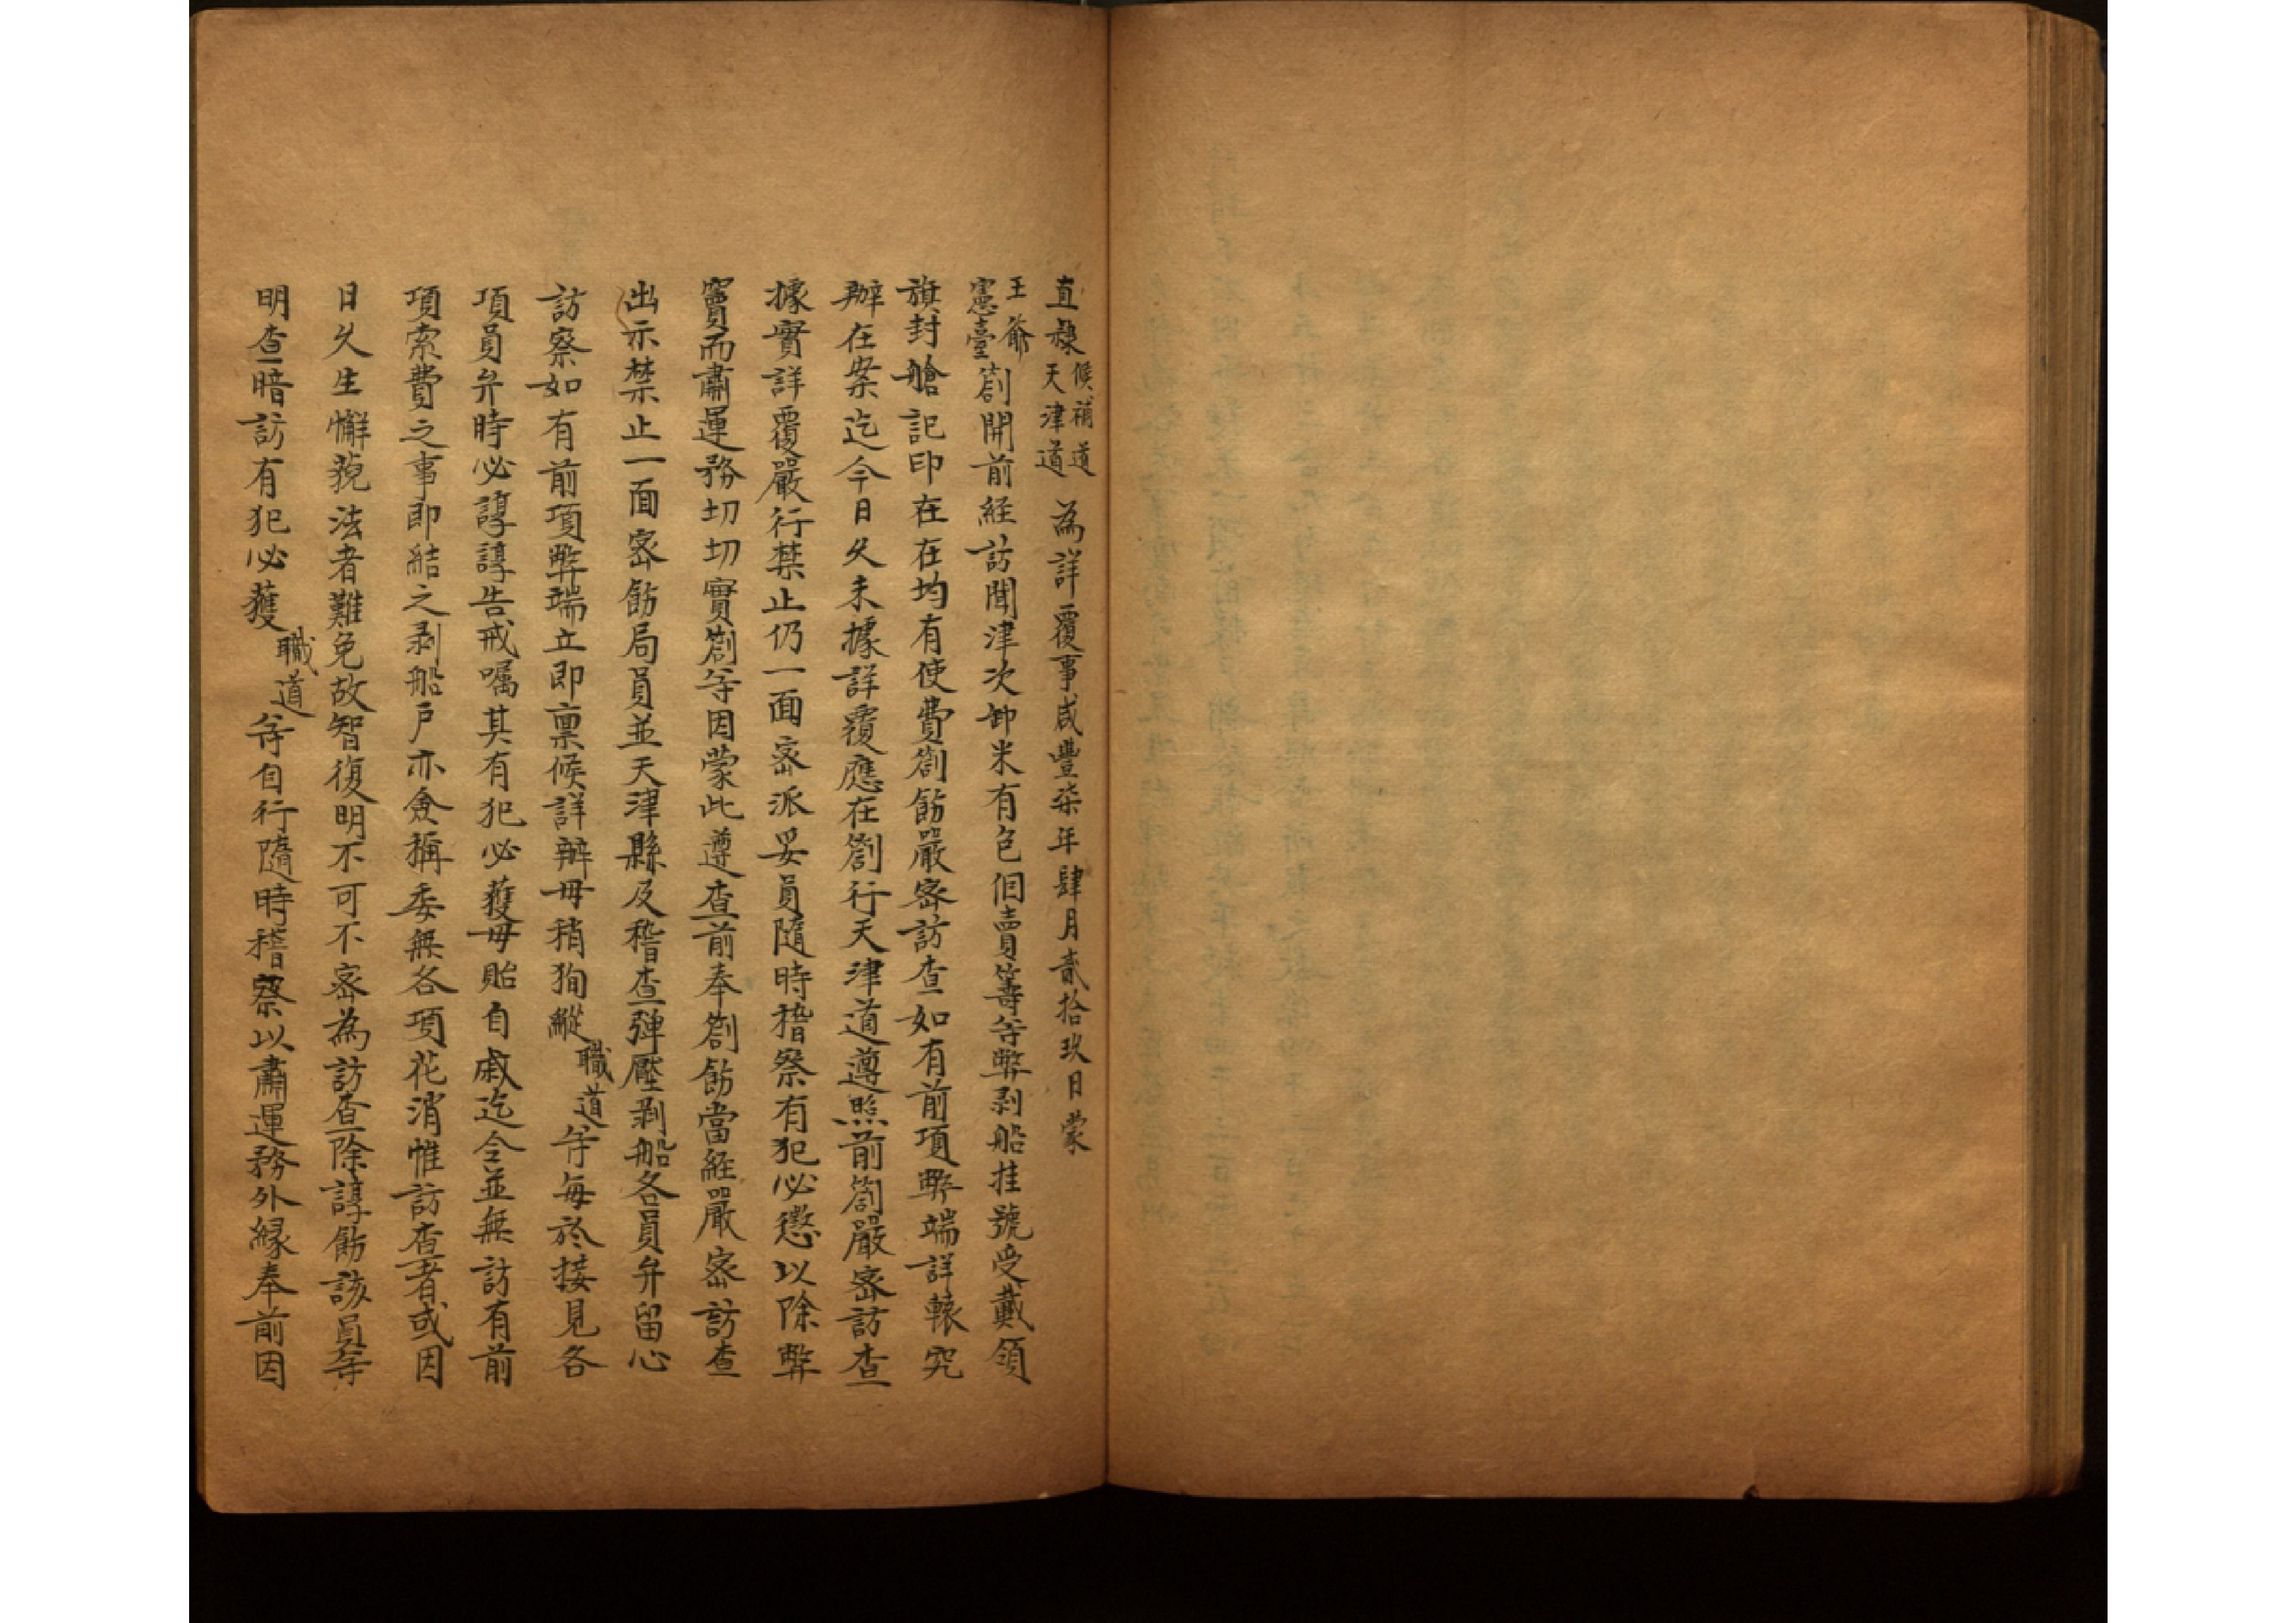 直隸候補道天津道為詳覆事咸豐柒年肆月貳拾玖日蒙
王爺憲臺劄開前經訪聞津次卸米有包佃賣籌等弊剥船挂號受戴領
旗封艙記印在在均有使費劄飭嚴宻訪查如有前項弊端詳轅究
辦在案迄今日久未據詳覆應在劄行天津道遵照前劄嚴宻訪查
據實詳覆嚴行禁止仍一面宻派妥員隨時稽察有犯必懲以除弊
竇而肅運務切切實劄等因蒙此遵查前奉劄飭當經嚴宻訪查
出示禁止一面宻飭局員並天津縣及稽查彈壓剥船各員弁留心
訪察如有前項弊瑞立即稟候詳辦毋稍狥縱職道等每於接見各
項員弁時必諄諄告戒嘱其有犯必獲毋貽自戚迄今並無訪有前
項索費之事即結之剥船戶亦僉稱委無各項花消惟訪查者或因
日久生懈藐法者難免故智復明不可不宻為訪查除諄飭該員等
明查暗訪有犯必獲職道等自行隨時稽察以肅運務外緣奉前因